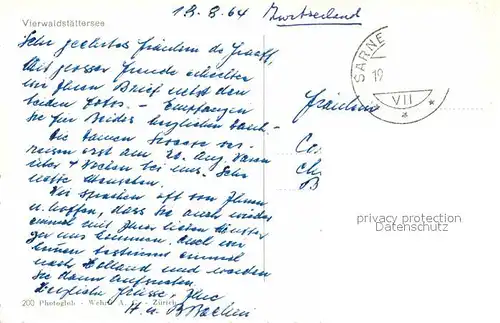 18.8.64 Zwitserland
Vierwaldstättersee
Sehr geehrtes Fräulein de Graaff,
Mit grosser Freude erhielten
wir Ihren Brief nebst den
beiden Fotos. - Empfangen
Sie für Beides herzlichen Dank. -
Die Damen ver-
reisen erst am 20. Aug. waren
über 4 Wochen bei uns. Sehr
nette Menschen.
Wir sprechen oft von Ihnen
u. hoffen, dass Sie auch wieder
einmal mit Ihrer lieben Mutter
zu uns kommen. Auch wir
kommen bestimmt einmal
nach Holland und werden
Sie dann aufsuchen.
Herzliche Grüsse, Ihre
H. u. B.
200 Photoglob - Wehrli A. G. - Zürich
SARNE
19
VII
Fräulein
Co.
B
privacy protection
Datenschutz